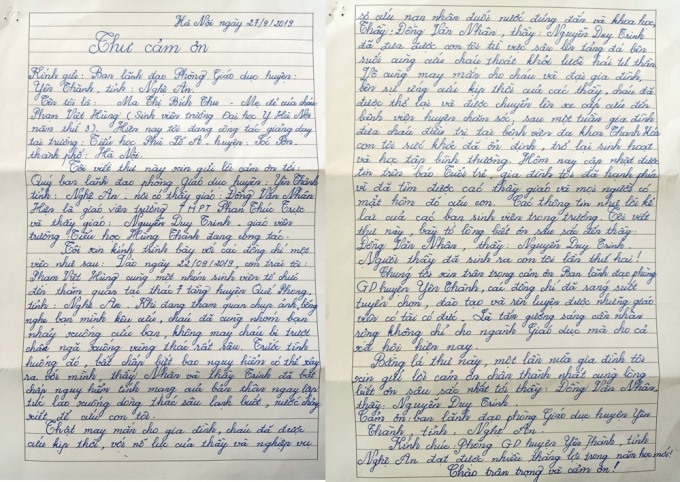 Hà Nội ngày 27/9/2019
Thư cảm ơn
Kính gửi: Ban lãnh đạo Phòng Giáo dục huyện:
Yên Thành, tỉnh: Nghệ An.
Tên tôi là: Ma Thị Bích Thu - Mẹ đẻ của cháu
Phan Việt Hùng (Sinh viên trường Đại học Y Hà Nội
năm thứ 3). Hiện nay tôi đang công tác, giảng dạy
tại trường: Tiểu học Phù Lỗ A - huyện: Sóc Sơn -
thành phố: Hà Nội.
Tôi viết thư này xin gửi lời cảm ơn tới:
Quý ban lãnh đạo phòng Giáo dục huyện: Yên Thành
tỉnh: Nghệ An, nơi có thầy giáo: Đồng Văn Nhân
Hiện là giáo viên trường THPT Phan Thúc Trực
và thầy giáo: Nguyễn Duy Trinh, giáo viên
trường Tiểu học Hùng Thành đang công tác.
Tôi xin kính trình bày với các đồng chí một
việc như sau: Vào ngày 22/09/2019, con trai tôi:
Phạm Việt Hùng cùng một nhóm sinh viên tổ chức
đến thăm quan tại thác 7 tầng huyện Quế Phong,
tỉnh: Nghệ An. Khi đang tham quan chụp ảnh, bỗng
nghe bạn mình kêu cứu, cháu đã cùng nhóm bạn
nhảy xuống cứu bạn, không may cháu bị trượt
chân ngã xuống vùng thác rất sâu. Trước tình
huống đó, bất chấp biết bao nguy hiểm có thể xảy
ra với mình, thầy Nhân và thầy Trinh đã bất
chấp nguy hiểm tính mạng của bản thân ngay lập
tức lao xuống dòng thác sâu lạnh buốt, nước chảy
xiết, để cứu con tôi.
Thật may mắn cho gia đình, cháu đã được
cứu kịp thời, với nỗ lực của thầy và nghiệp vụ
sơ cứu nạn nhân đuối nước đúng đắn và khoa học,
Thầy: Đồng Văn Nhân, thầy: Nguyễn Duy Trinh
đã đưa được con tôi từ vực sâu lên tảng đá bên
suối cùng cứu cháu thoát khỏi lưỡi hái tử thần.
Vô cùng may mắn cho cháu và đại gia đình,
bên sự ứng cứu kịp thời của các thầy, cháu đã
được thở lại và được chuyển lên xe cấp cứu đến
bệnh viện huyện chăm sóc, sau một tuần gia đình
đưa cháu điều trị tại bệnh viện đa khoa Thanh Hóa
con tôi sức khỏe đã ổn định, trở lại sinh hoạt
và học tập bình thường. Hôm nay cập nhật được
tin trên báo Tuổi trẻ, gia đình tôi đã hạnh phúc
vì đã tìm được các thầy giáo và mọi người có
mặt hôm đó cứu con. Các thông tin như lời kể
lại của các bạn sinh viên trong trường. Tôi viết
thư này, bày tỏ lòng biết ơn sâu sắc đến thầy:
Đồng Văn Nhân, thầy: Nguyễn Duy Trinh.
Người thầy đã sinh ra con tôi lần thứ hai!
Chúng tôi xin trân trọng cảm ơn Ban lãnh đạo phòng
GD huyện Yên Thành, các đồng chí đã sáng suốt
tuyển chọn, đào tạo và rèn luyện được những giáo
viên có tài có đức. Là tấm gương sáng cần nhân
rộng không chỉ cho ngành Giáo dục mà cho cả
xã hội hiện nay.
Bằng lá thư này, một lần nữa gia đình tôi
xin gửi lời cảm ơn chân thành nhất cùng lòng
biết ơn sâu sắc nhất tới thầy: Đồng Văn Nhân,
thầy: Nguyễn Duy Trinh
Cảm ơn ban lãnh đạo phòng Giáo dục huyện Yên
Thành, tỉnh: Nghệ An.
Kính chúc Phòng GD huyện Yên Thành, tỉnh
Nghệ An đạt được nhiều thắng lợi trong năm học mới!
Chào trân trọng và cảm ơn!